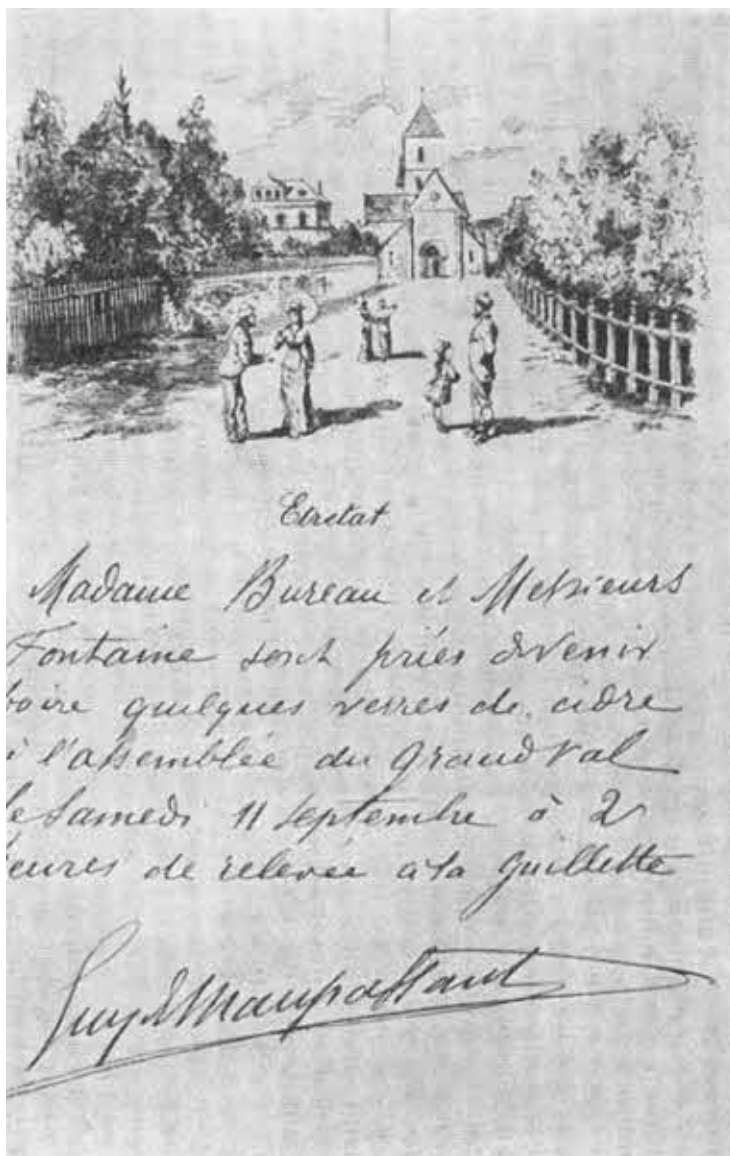 Etretat
Madame Bureau et Messieurs
Fontaine sont priés de venir
boire quelques verres de cidre
à l'assemblée du Grand Val
le Samedi 11 Septembre à 2
heures de relevée à la Guillette
Guy de Maupassant